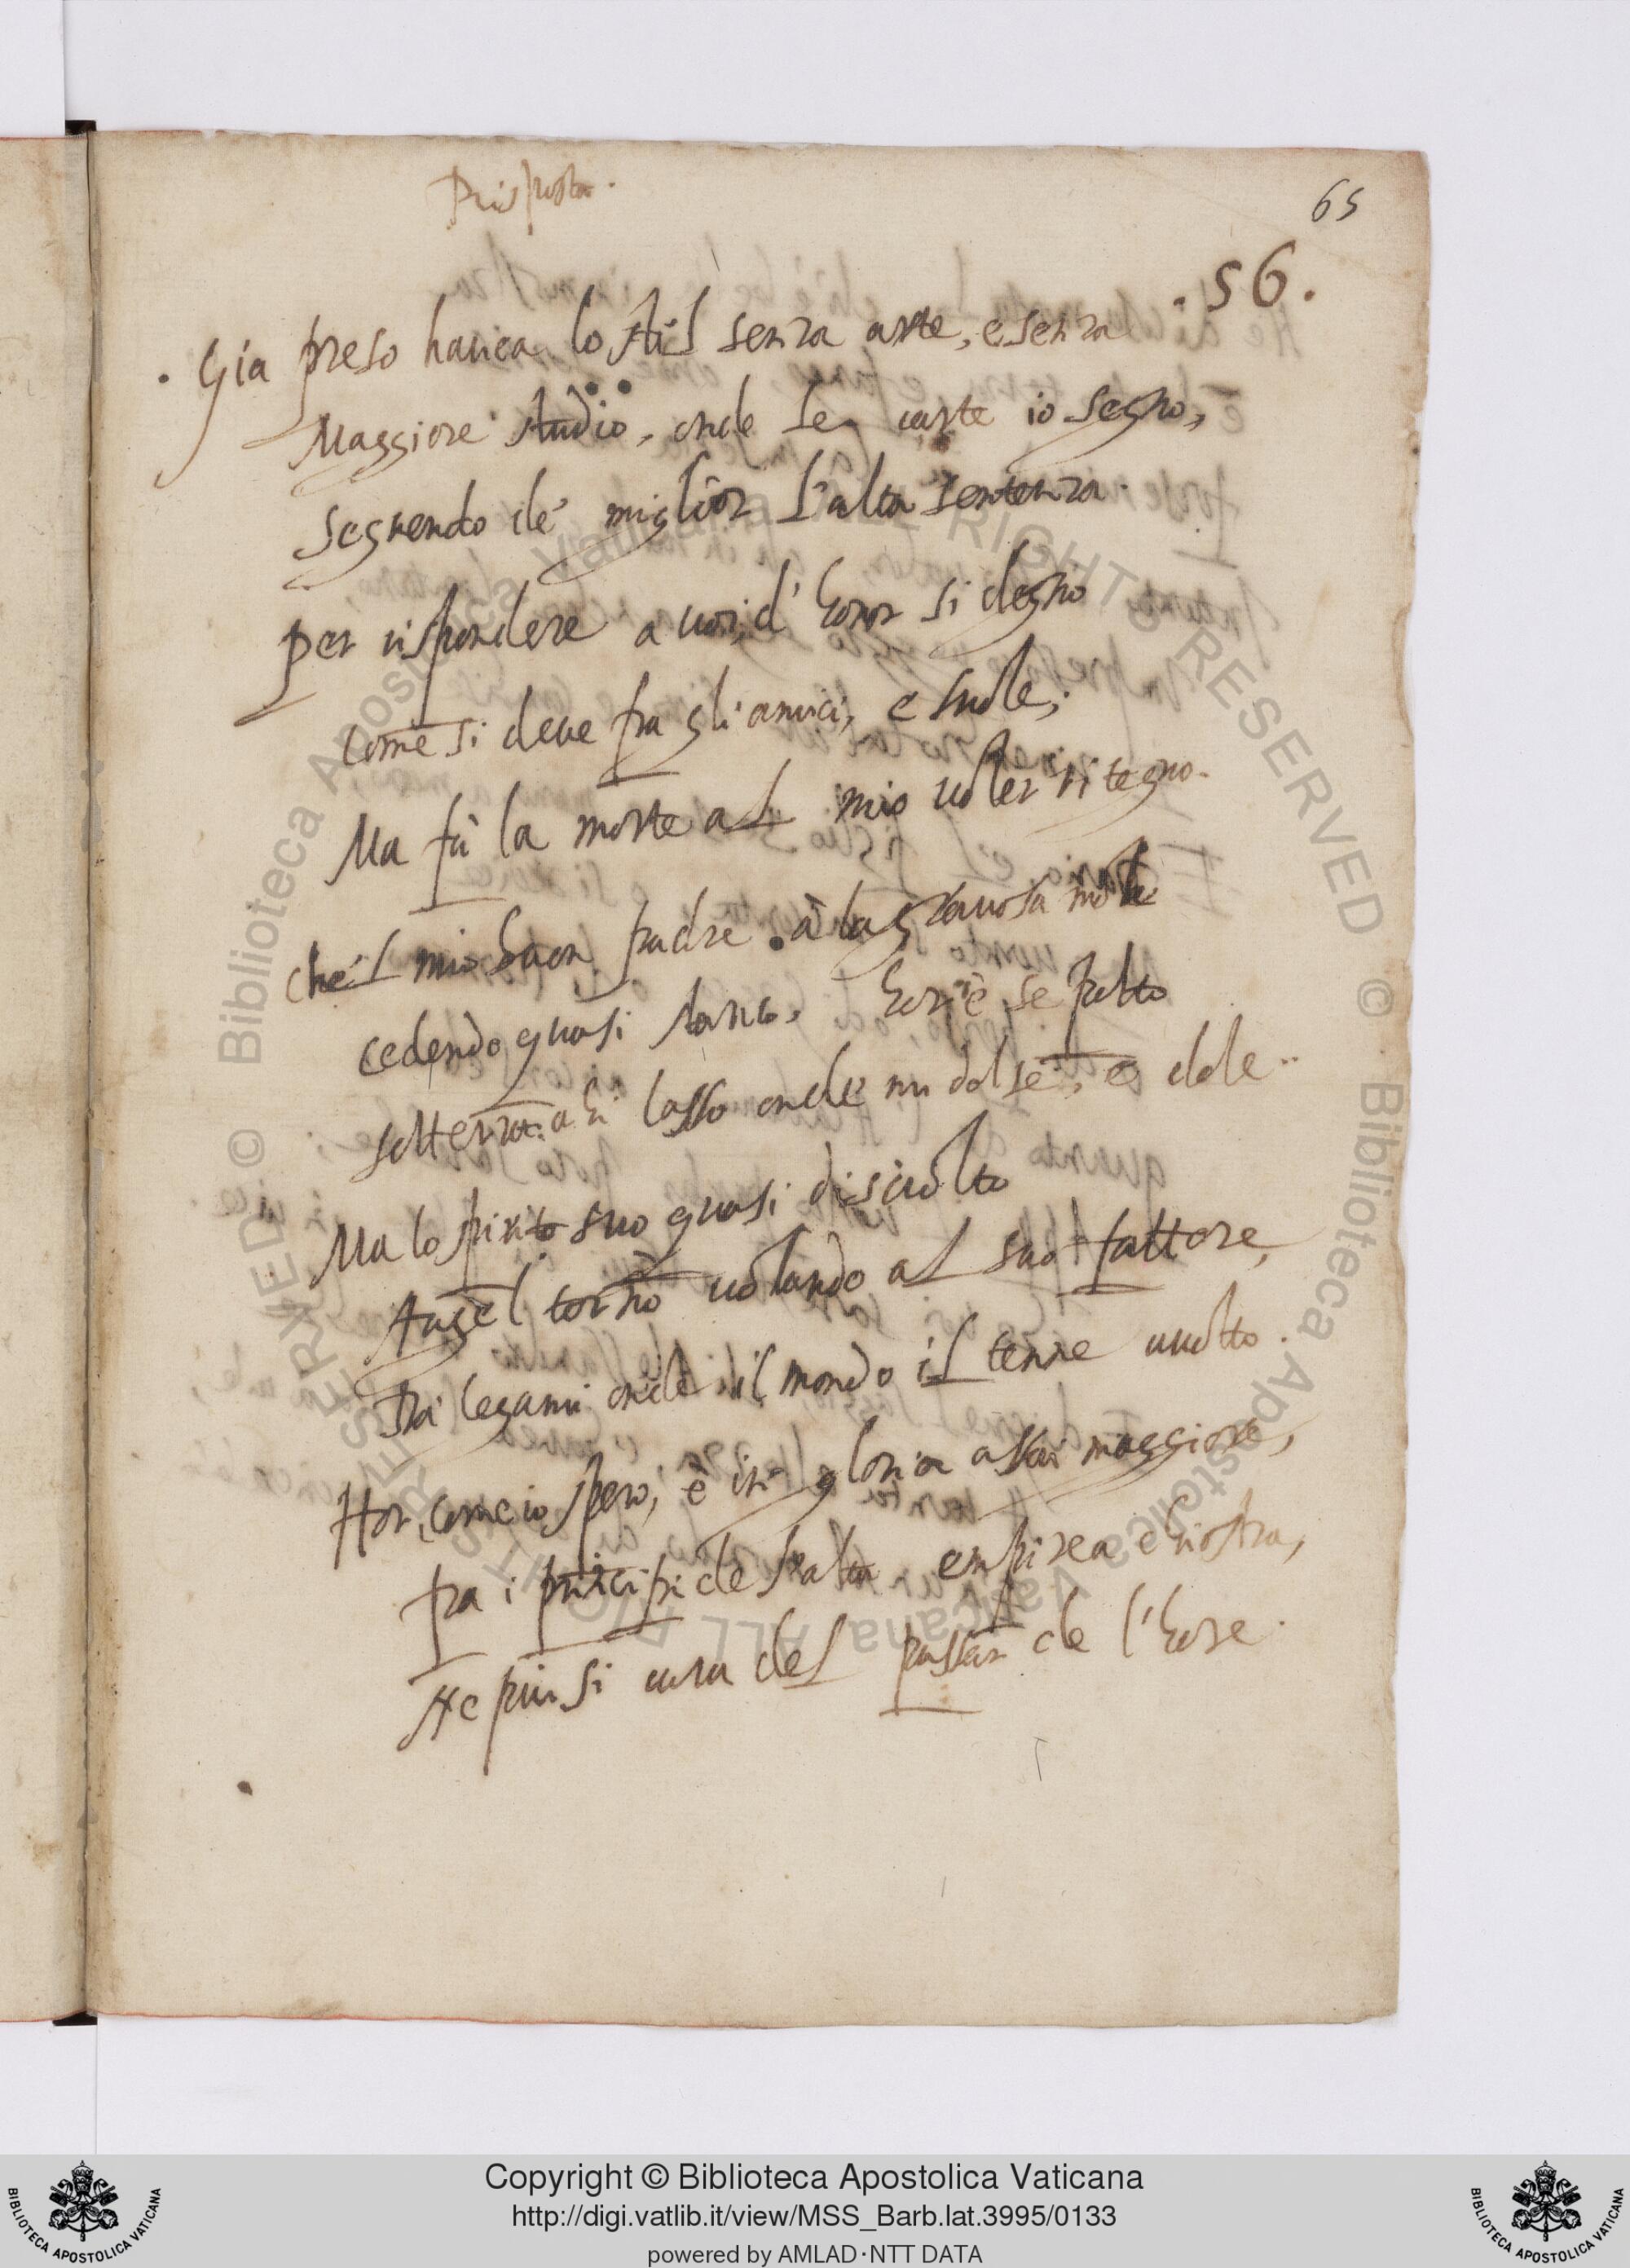 Risposta.
65
.56.
. Gia preso hauea lo stil senza arte, e senza
Maggiore studio, onde le carte io segno,
Seguendo de' miglior l'alta sentenza.
Per rispondere a uoi, d'honor si degno
Come si deue fra gli amici, e suole;
Ma fù la morte al mio uoler ritegno.
Che'l mio buon padre à la grauosa mole
cedendo quasi stanco, hor'è sepolto
sotterra: ahi lasso onde mi dolse, e dole..
Ma lo spirito suo quasi disciolto
Augel tornò uolando al suo fattore,
Tra' legami onde il mondo il tenne inuolto.
Hor, come io spero, è in gloria assai maggiore,
fra i principi de l'alta empirea chiostra,
Ne piu si cura del passar de l'hore.
© Biblioteca Apostolica Vaticana ALL RIGHTS RESERVED
© Biblioteca Apostolica Vaticana ALL RIGHTS RESERVED
BIBLIOTECA APOSTOLICA VATICANA
Copyright © Biblioteca Apostolica Vaticana
http://digi.vatlib.it/view/MSS_Barb.lat.3995/0133
powered by AMLAD·NTT DATA
BIBLIOTECA APOSTOLICA VATICANA